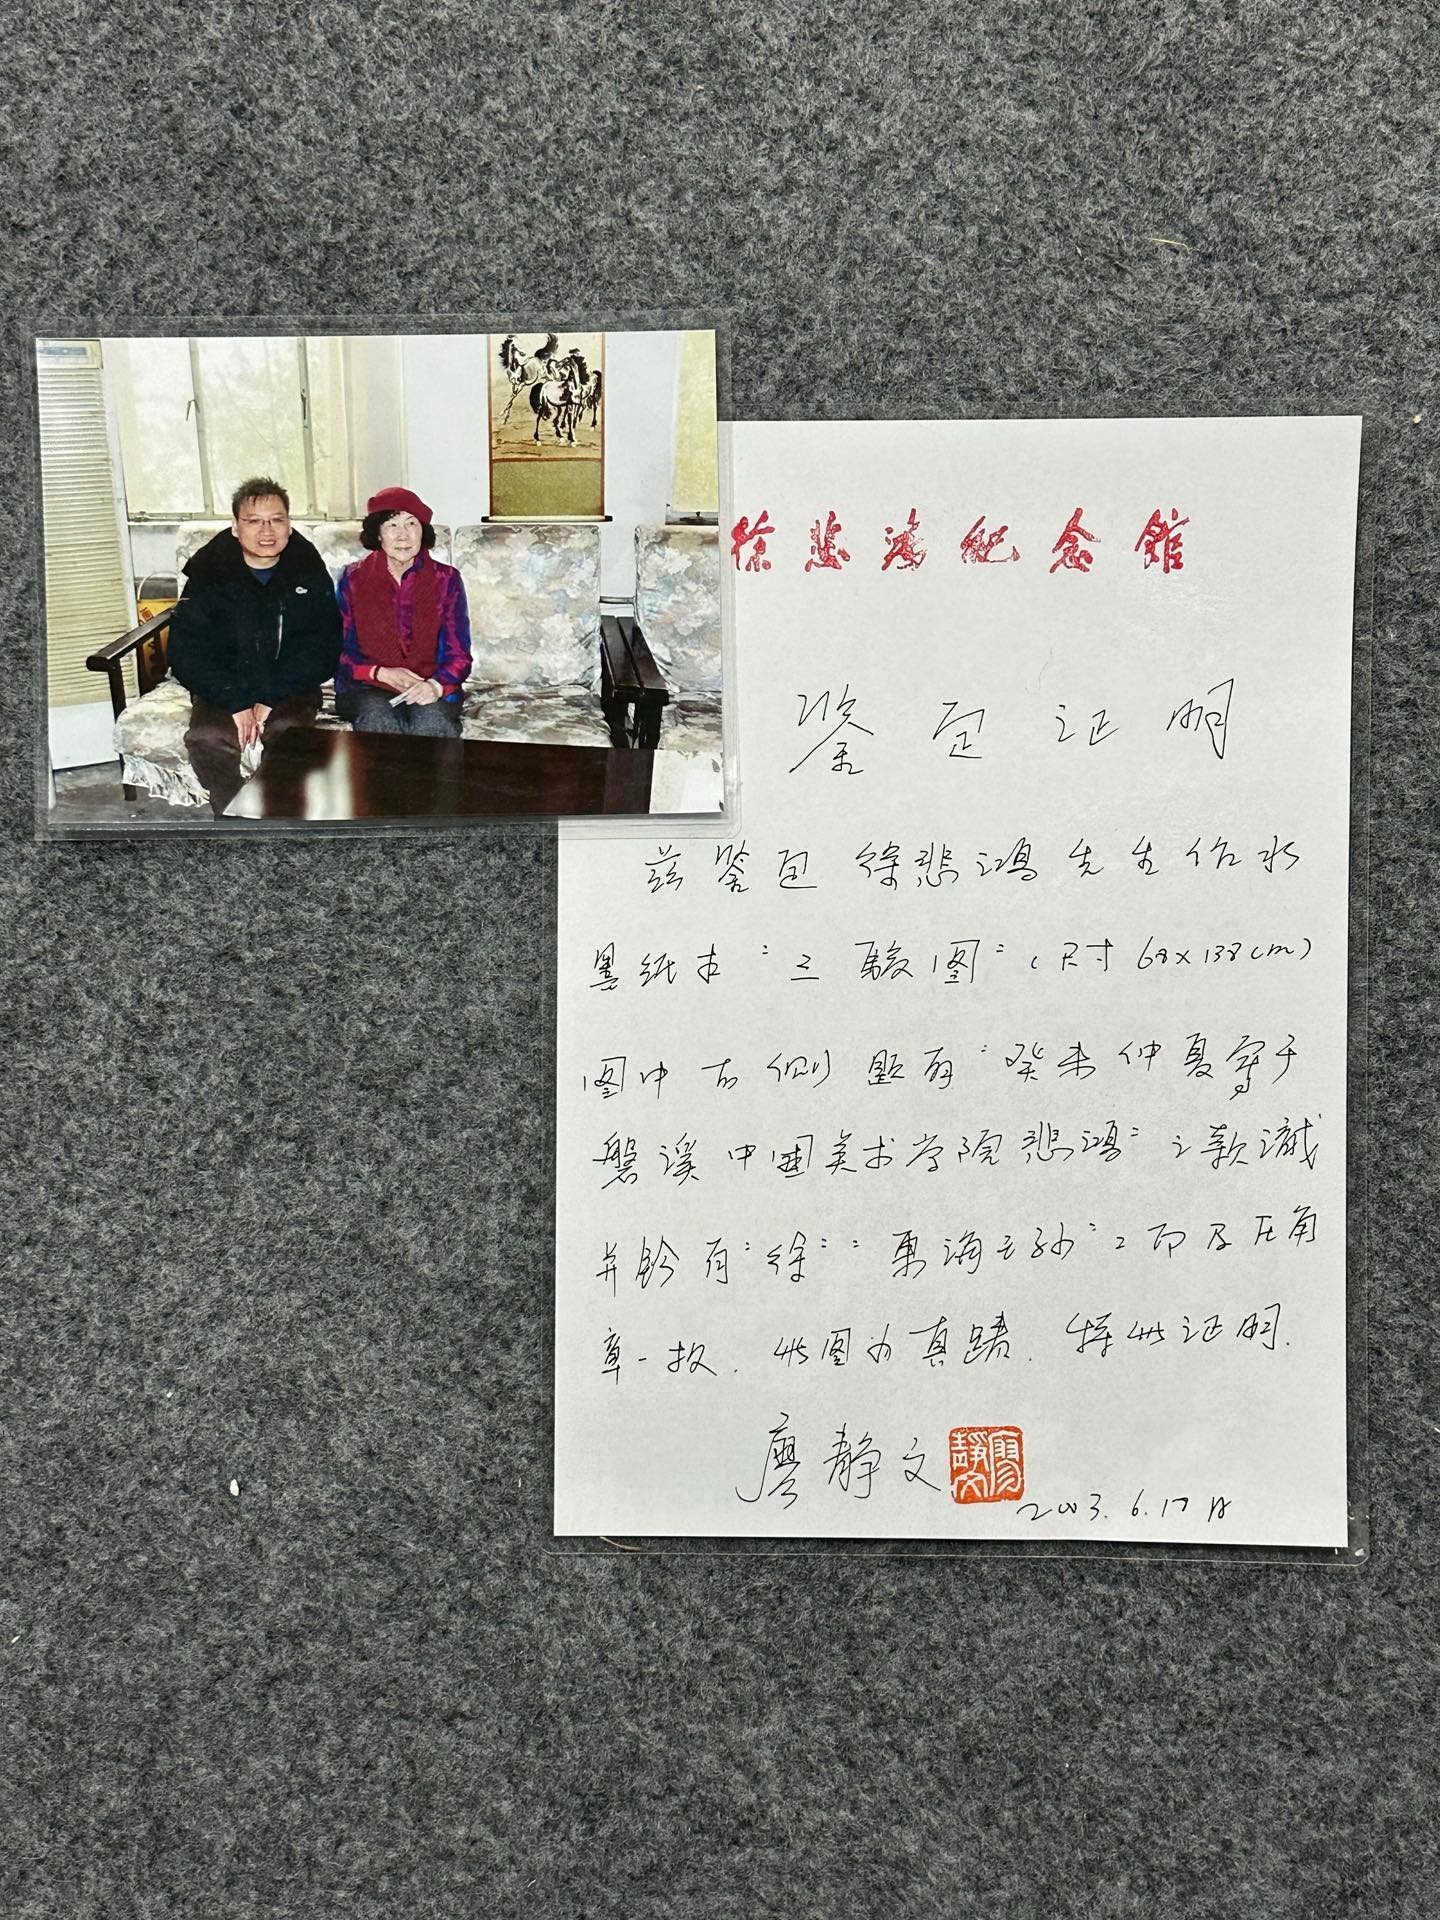 徐悲鸿纪念馆
鉴定证明
兹鉴定徐悲鸿先生作水
墨纸本"三骏图"(尺寸68x138cm)
图中右侧题有"癸未仲夏写于
磐溪中国美术学院悲鸿"之款识
并钤有"徐""东海王孙"二印及压角
章一枚.此图为真迹.特此证明.
廖静文
廖靜文
2003.6.17日